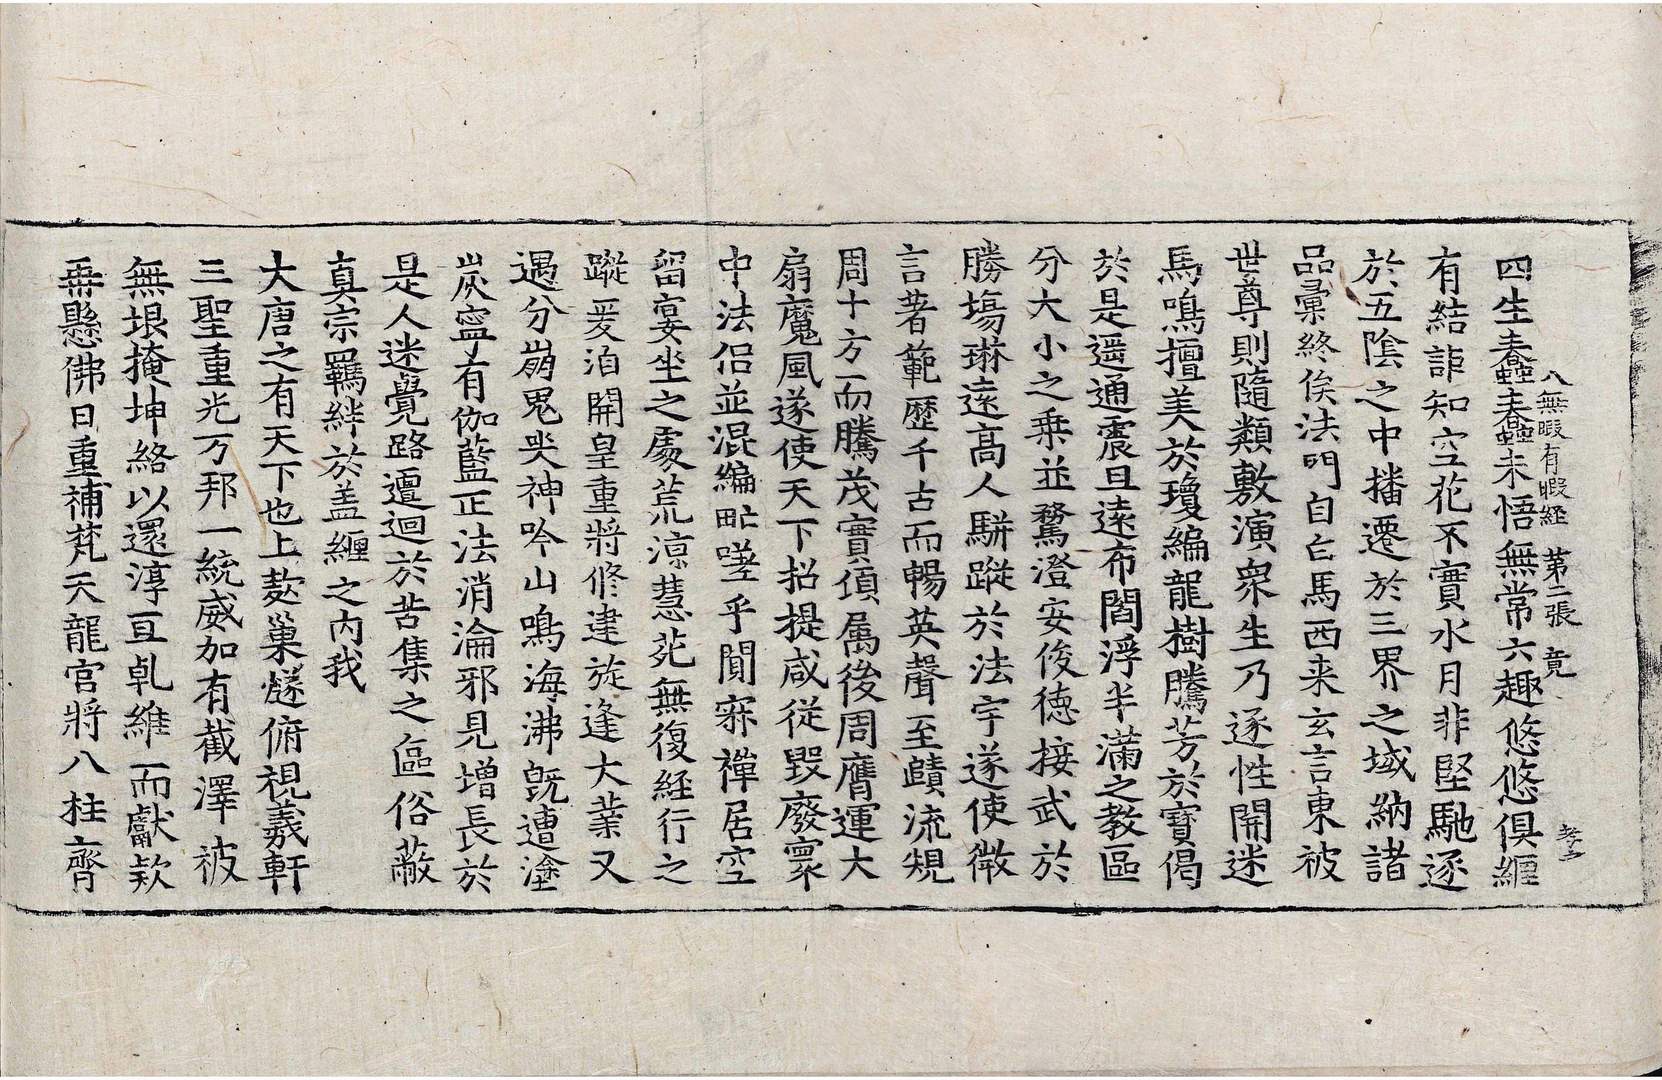 八無暇有暇経 第二張 竟
四生蠢蠢未悟無常六趣悠悠俱纒
有結詎知空花不實水月非堅馳逐
於五陰之中播遷於三界之域納諸
品彙終俟法門自白馬西来玄言東被
世尊則隨類敷演衆生乃逐性開迷
馬鳴擅美於瓊編龍樹騰芳於寶偈
於是遥通震旦遠布閻浮半滿之教區
分大小之乗並騖澄安俊德接武於
勝場琳遠高人騈蹤於法宇遂使微
言著範歷千古而暢英聲至賾流規
周十方而騰茂實須属後周膺運大
扇魔風遂使天下招提咸従毀廢寰
中法侣並混編甿嗟乎閴寂禪居空
留宴坐之處荒涼慧菀無復経行之
蹤爰洎開皇重將修建旋逢大業又
遇分崩鬼哭神吟山鳴海沸旣遭塗
炭寧有伽藍正法消淪邪見增長於
是人迷覺路邅迴於苦集之區俗蔽
真宗羈絆於盖纒之内我
大唐之有天下也上㪅巢燧俯視羲軒
三聖重光万邦一統威加有截澤被
無垠掩坤絡以還淳亘乹維而獻款
再懸佛日重補梵天龍宮將八柱齊